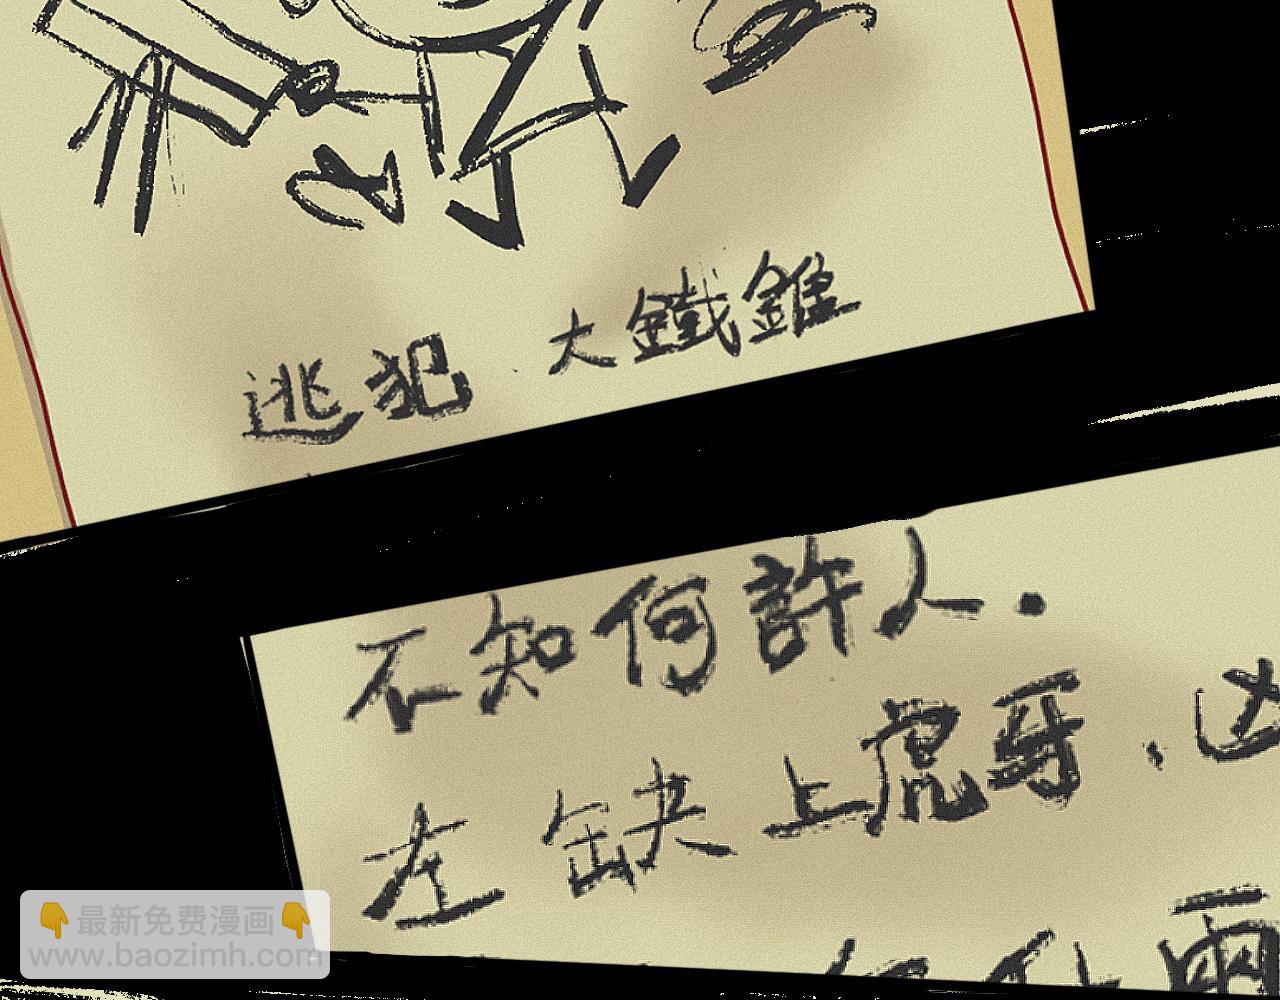 逃犯 大鐵錐
不知何許人.
左缺上虎牙.凶
👇最新免费漫画👇
www.baozimh.com